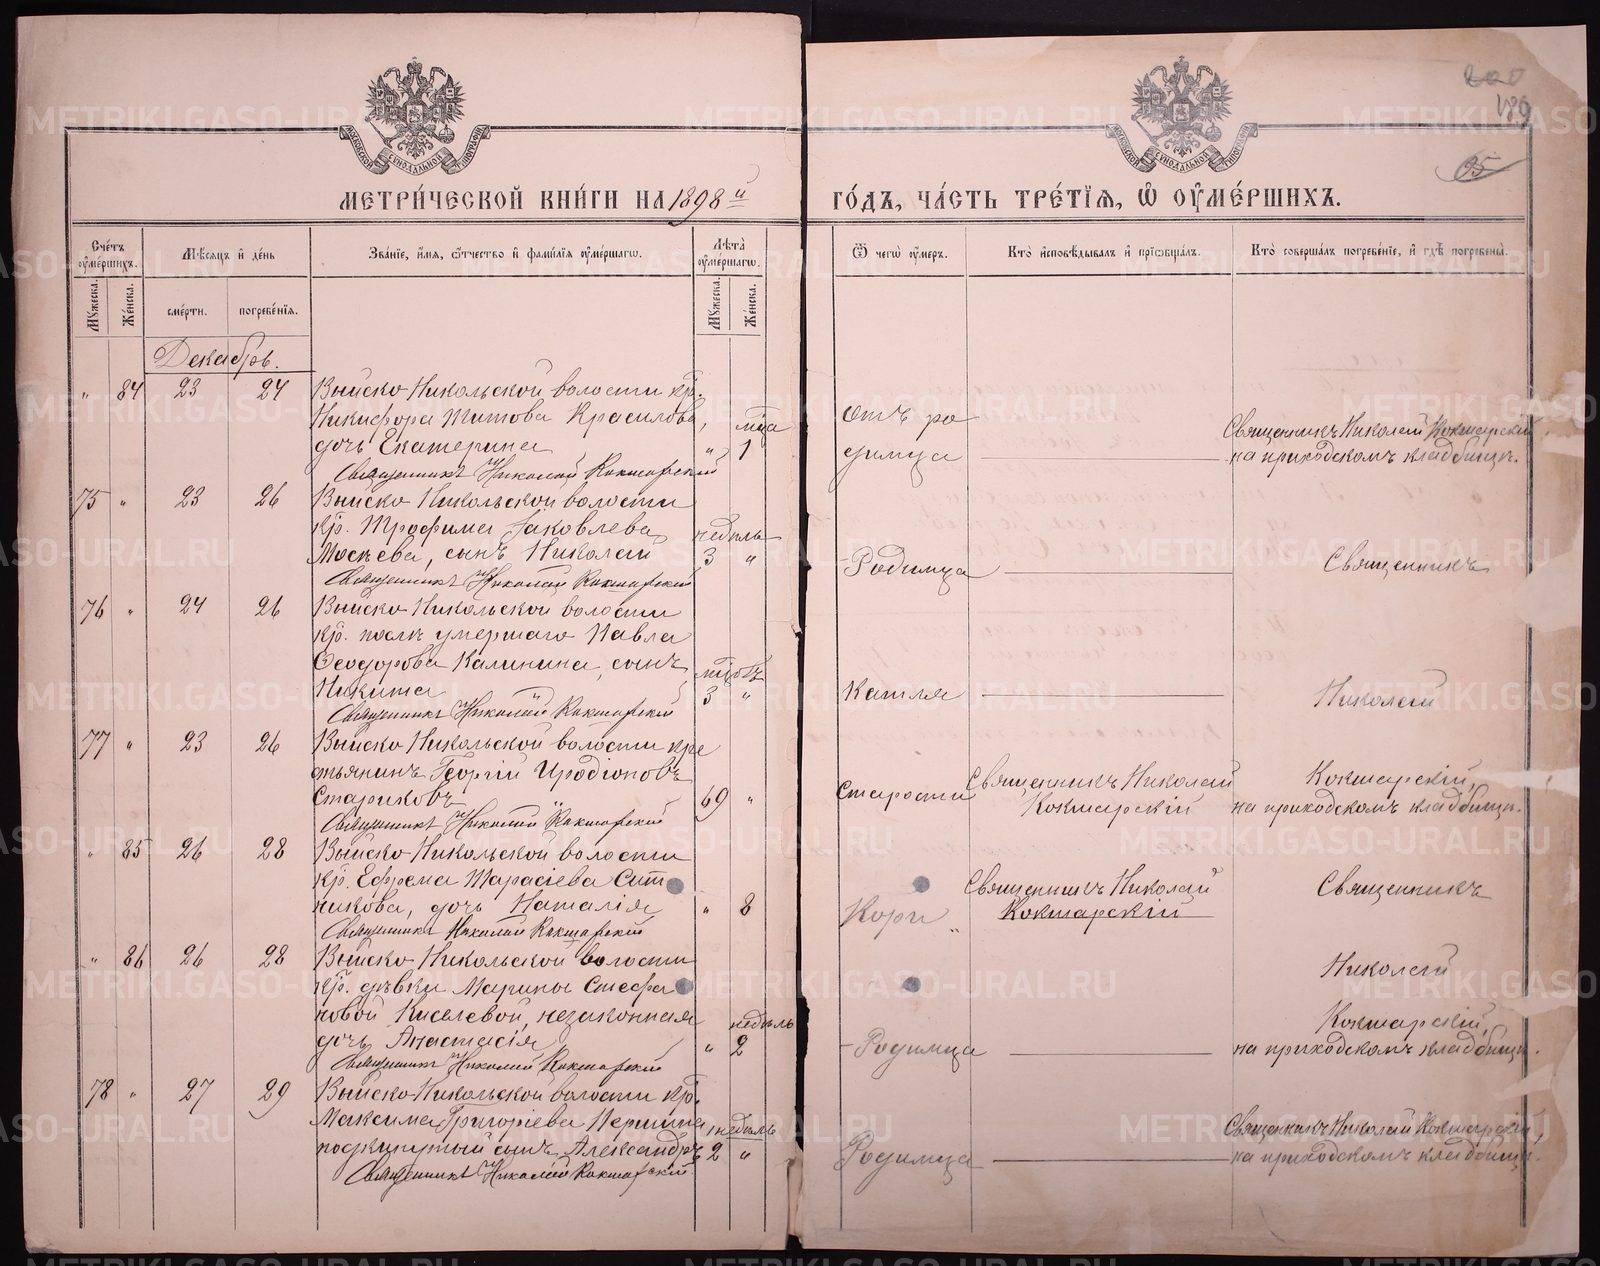 200
189
95
МЕТРИ́ЧЕСКОЙ КНИ́ГИ НА 1898 й
ГО́ДЪ, ЧА́СТЬ ТРЕ́ТЇѦ, Ѡ҆ ОУ҆МЕ́РШИХЪ.
Сче́тъ оу҆ме́ршихъ.
Мꙋ́жеска.
Же́нска.
Мѣ́сѧцъ и҆ де́нь
сме́рти.
погребе́нїѧ.
Зва́нїе, и҆́мѧ, ѻ҆́тчество и҆ фами́лїѧ оу҆ме́ршагѡ.
Лѣ́та оу҆ме́ршагѡ.
Мꙋ́жеска.
Же́нска.
Ѿ чегѡ̀ оу҆́меръ.
Кто̀ и҆сповѣ́дывалъ и҆ прїѡбща́лъ.
Кто̀ соверша́лъ погребе́нїе, и҆ гдѣ̀ погребены̀.
Декабрь.
" 84 23 24 Выйско-Никольской волости кр.
Никифора Титова Красилова, мца
дочь Екатерина " 1
Священникъ Николай Кокшарскій
отъ ро
димца
Священникъ Николай Кокшарскій
на приходскомъ кладбищѣ.
75 " 23 26 Выйско Никольской волости
кр. Трофима Іаковлева недѣль
Москвева, сынъ Николай 3 "
Священникъ Николай Кокшарскій
Родимца
Священникъ
76 " 24 26 Выйско Никольской волости
кр. послѣ умершаго Павла
Ѳеодорова Калинина, сынъ мцовъ
Никита 3 "
Священникъ Николай Кокшарскій
Кашля
Николай
77 " 23 26 Выйско Никольской волости кре
стьянинъ Георгій Иродіоновъ
Стариковъ 69 "
Священникъ Николай Кокшарскій
Старости
Священникъ Николай
Кокшарскій
Кокшарскій,
на приходскомъ кладбищѣ.
" 85 26 28 Выйско Никольской волости
кр. Ефрема Тарасіева Сит
никова, дочь Наталія " 8
Священникъ Николай Кокшарскій
Кори
Священникъ Николай
Кокшарскій
Священникъ
" 86 26 28 Выйско Никольской волости
кр. дѣвки Марины Стефа
новой Киселевой, незаконная недѣль
дочь Анастасія " 2
Священникъ Николай Кокшарскій
Родимца
Николай
Кокшарскій,
на приходскомъ кладбищѣ.
78 " 27 29 Выйско-Никольской волости кр.
Максима Григоріева Першина недѣль
подкинутый сынъ Александръ 2 "
Священникъ Николай Кокшарскій
Родимца
Священникъ Николай Кокшарскій,
на приходскомъ кладбищѣ.
METRIKI.GASO-URAL.RU